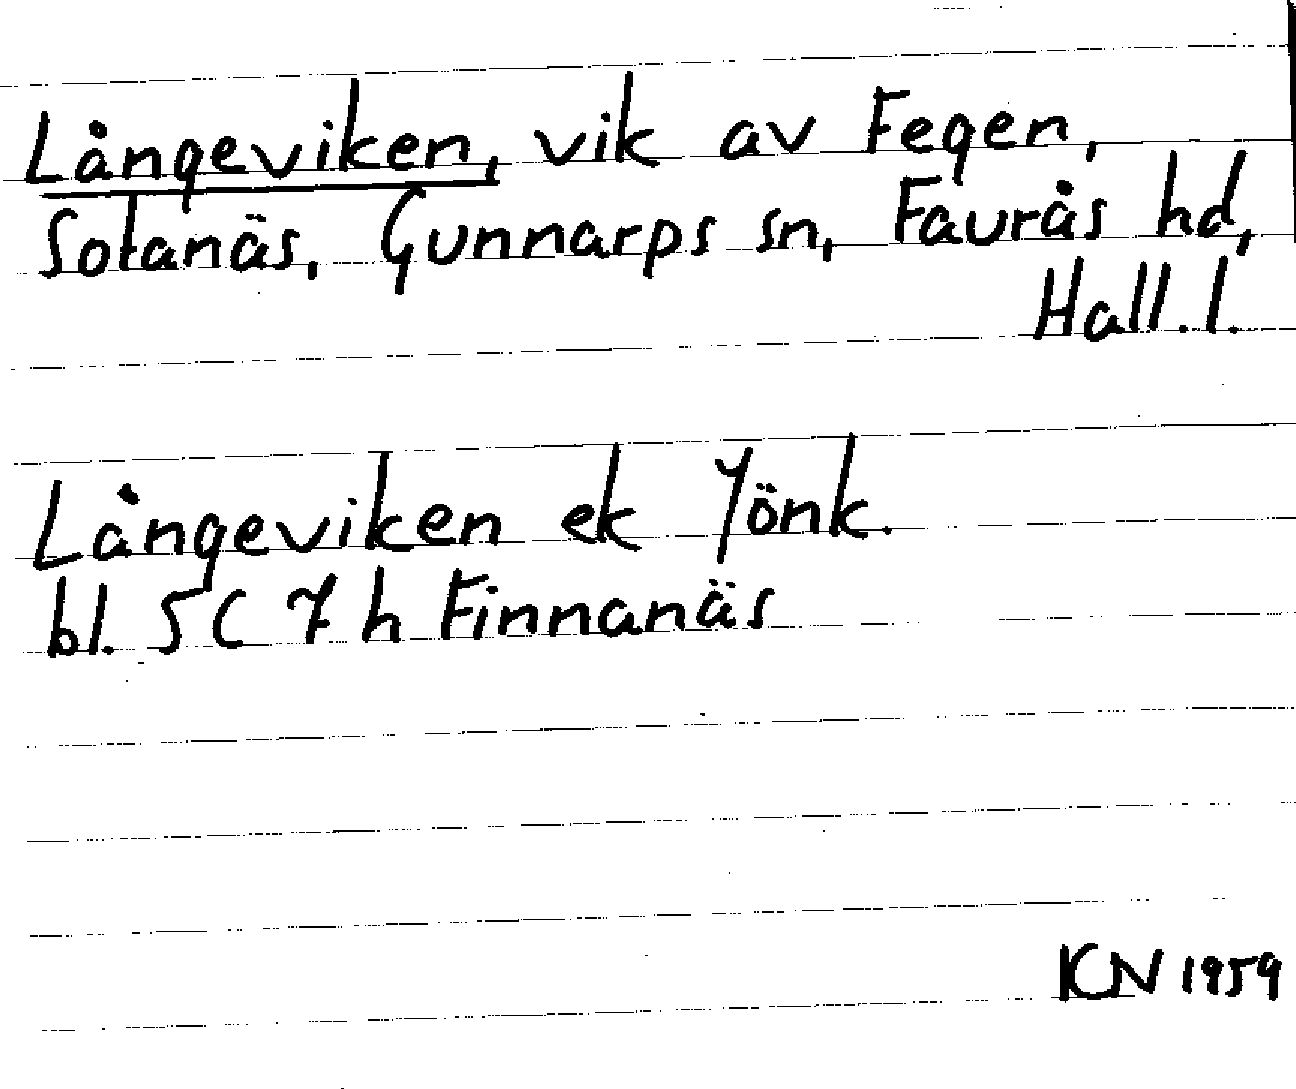 Långeviken, vik av Fegen,
Sotanäs, Gunnarps sn, Faurås hd,
Hall. l.
Långeviken ek Jönk.
bl. 5C 7h Finnanäs
KN 1959